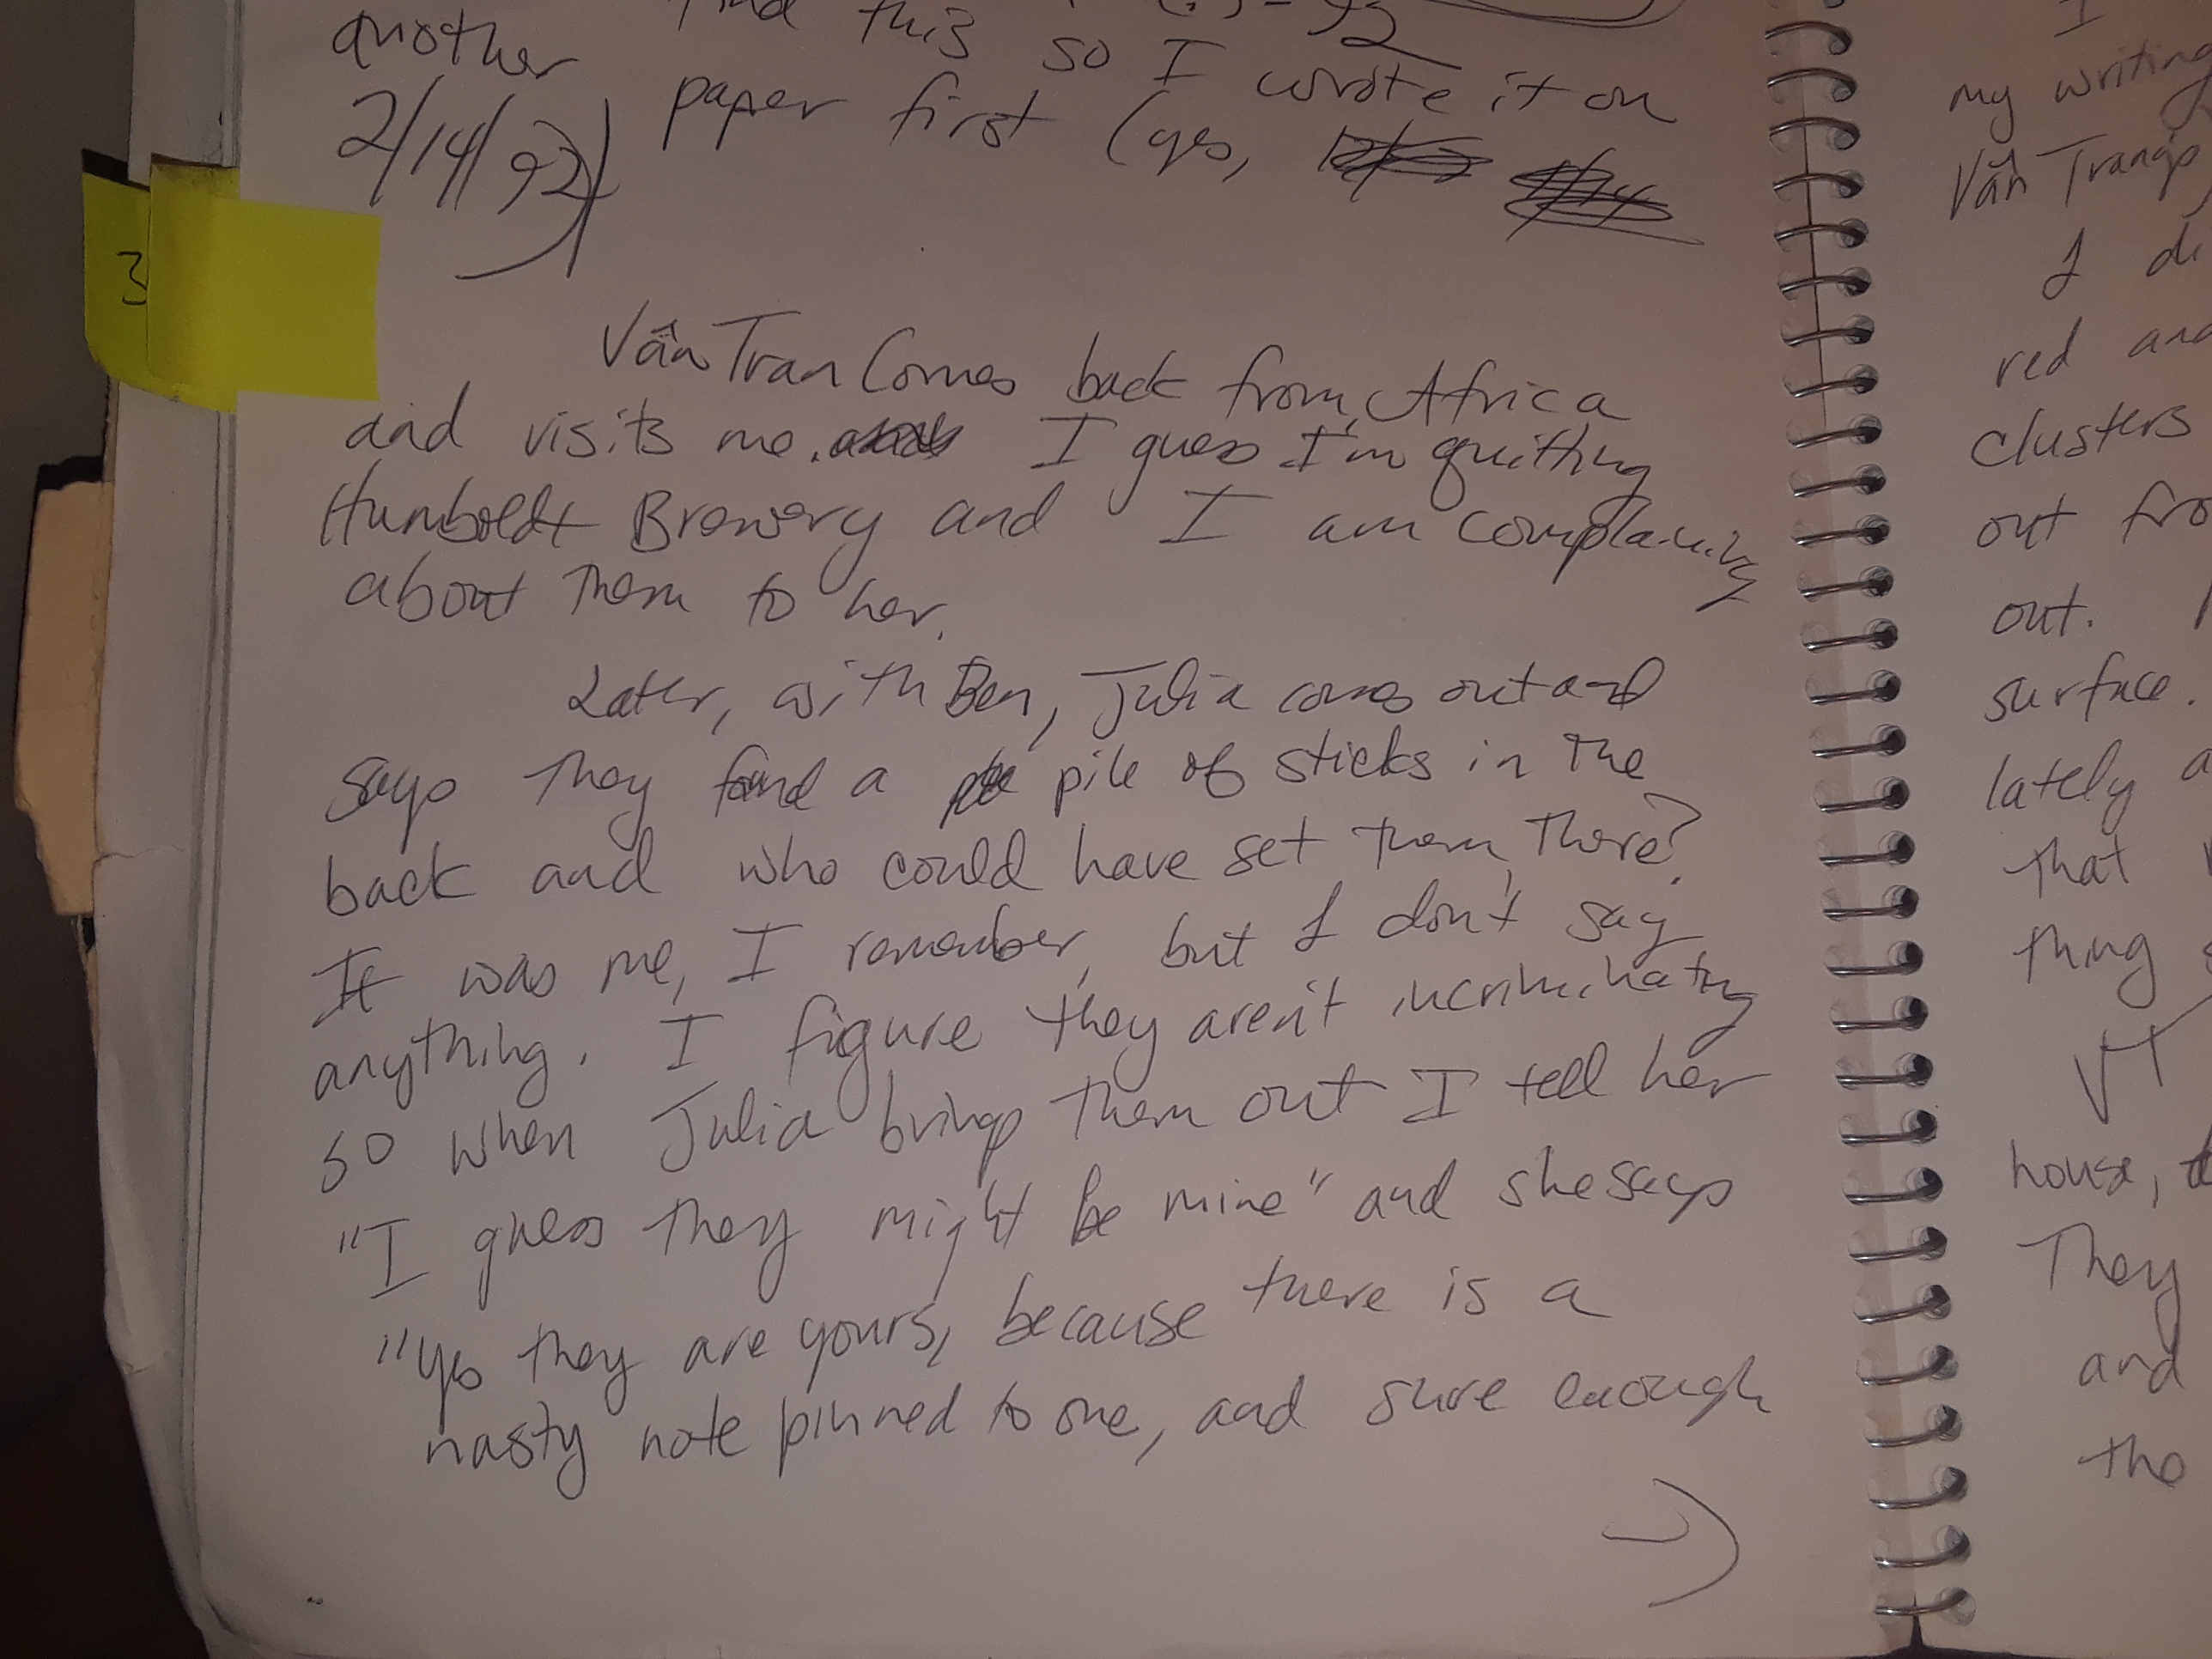 find this so I wrote it on
another paper first (yes,
2/14/92)
3
Vân Tran Comes back from Africa
and visits me. I guess I'm quitting
Humboldt Brewery and I am complaining
about them to her.
Later, with Ben, Julia comes out and
says they found a pile of sticks in the
back and who could have set them there?
It was me, I remember, but I don't say
anything. I figure they aren't incriminating
so when Julia brings them out I tell her
"I guess they might be mine" and she says
"Yes they are yours, because there is a
nasty note pinned to one, and sure enough
→
I
my writing
Vân Trang's
I di
red and
clusters
out fro
out.
surface.
lately a
that
thing
VT
house,
They
and
the